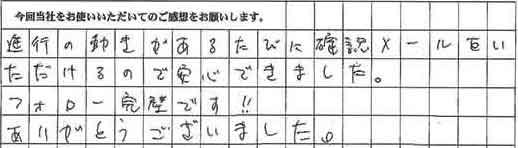 今回当社をお使いいただいてのご感想をお願いします。
進行の動きがあるたびに確認メール頂い
ただけるので安心できました。
フォロー完璧です!!
ありがとうございました。